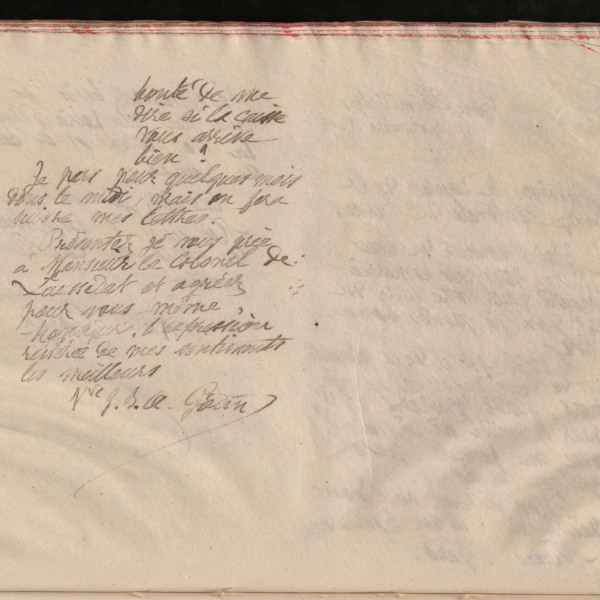 bonté de me
dire si la caisse
vous arrive
bien ?
Je pars pour quelques mois
dans le midi, mais on fera
suivre mes lettres.
Présentez je vous prie
à Monsieur le Colonel de
Laussedat et agréez
pour vous même
Monsieur, l'expression
réitérée de mes sentiments
les meilleurs
Vve J. B. A. Godin